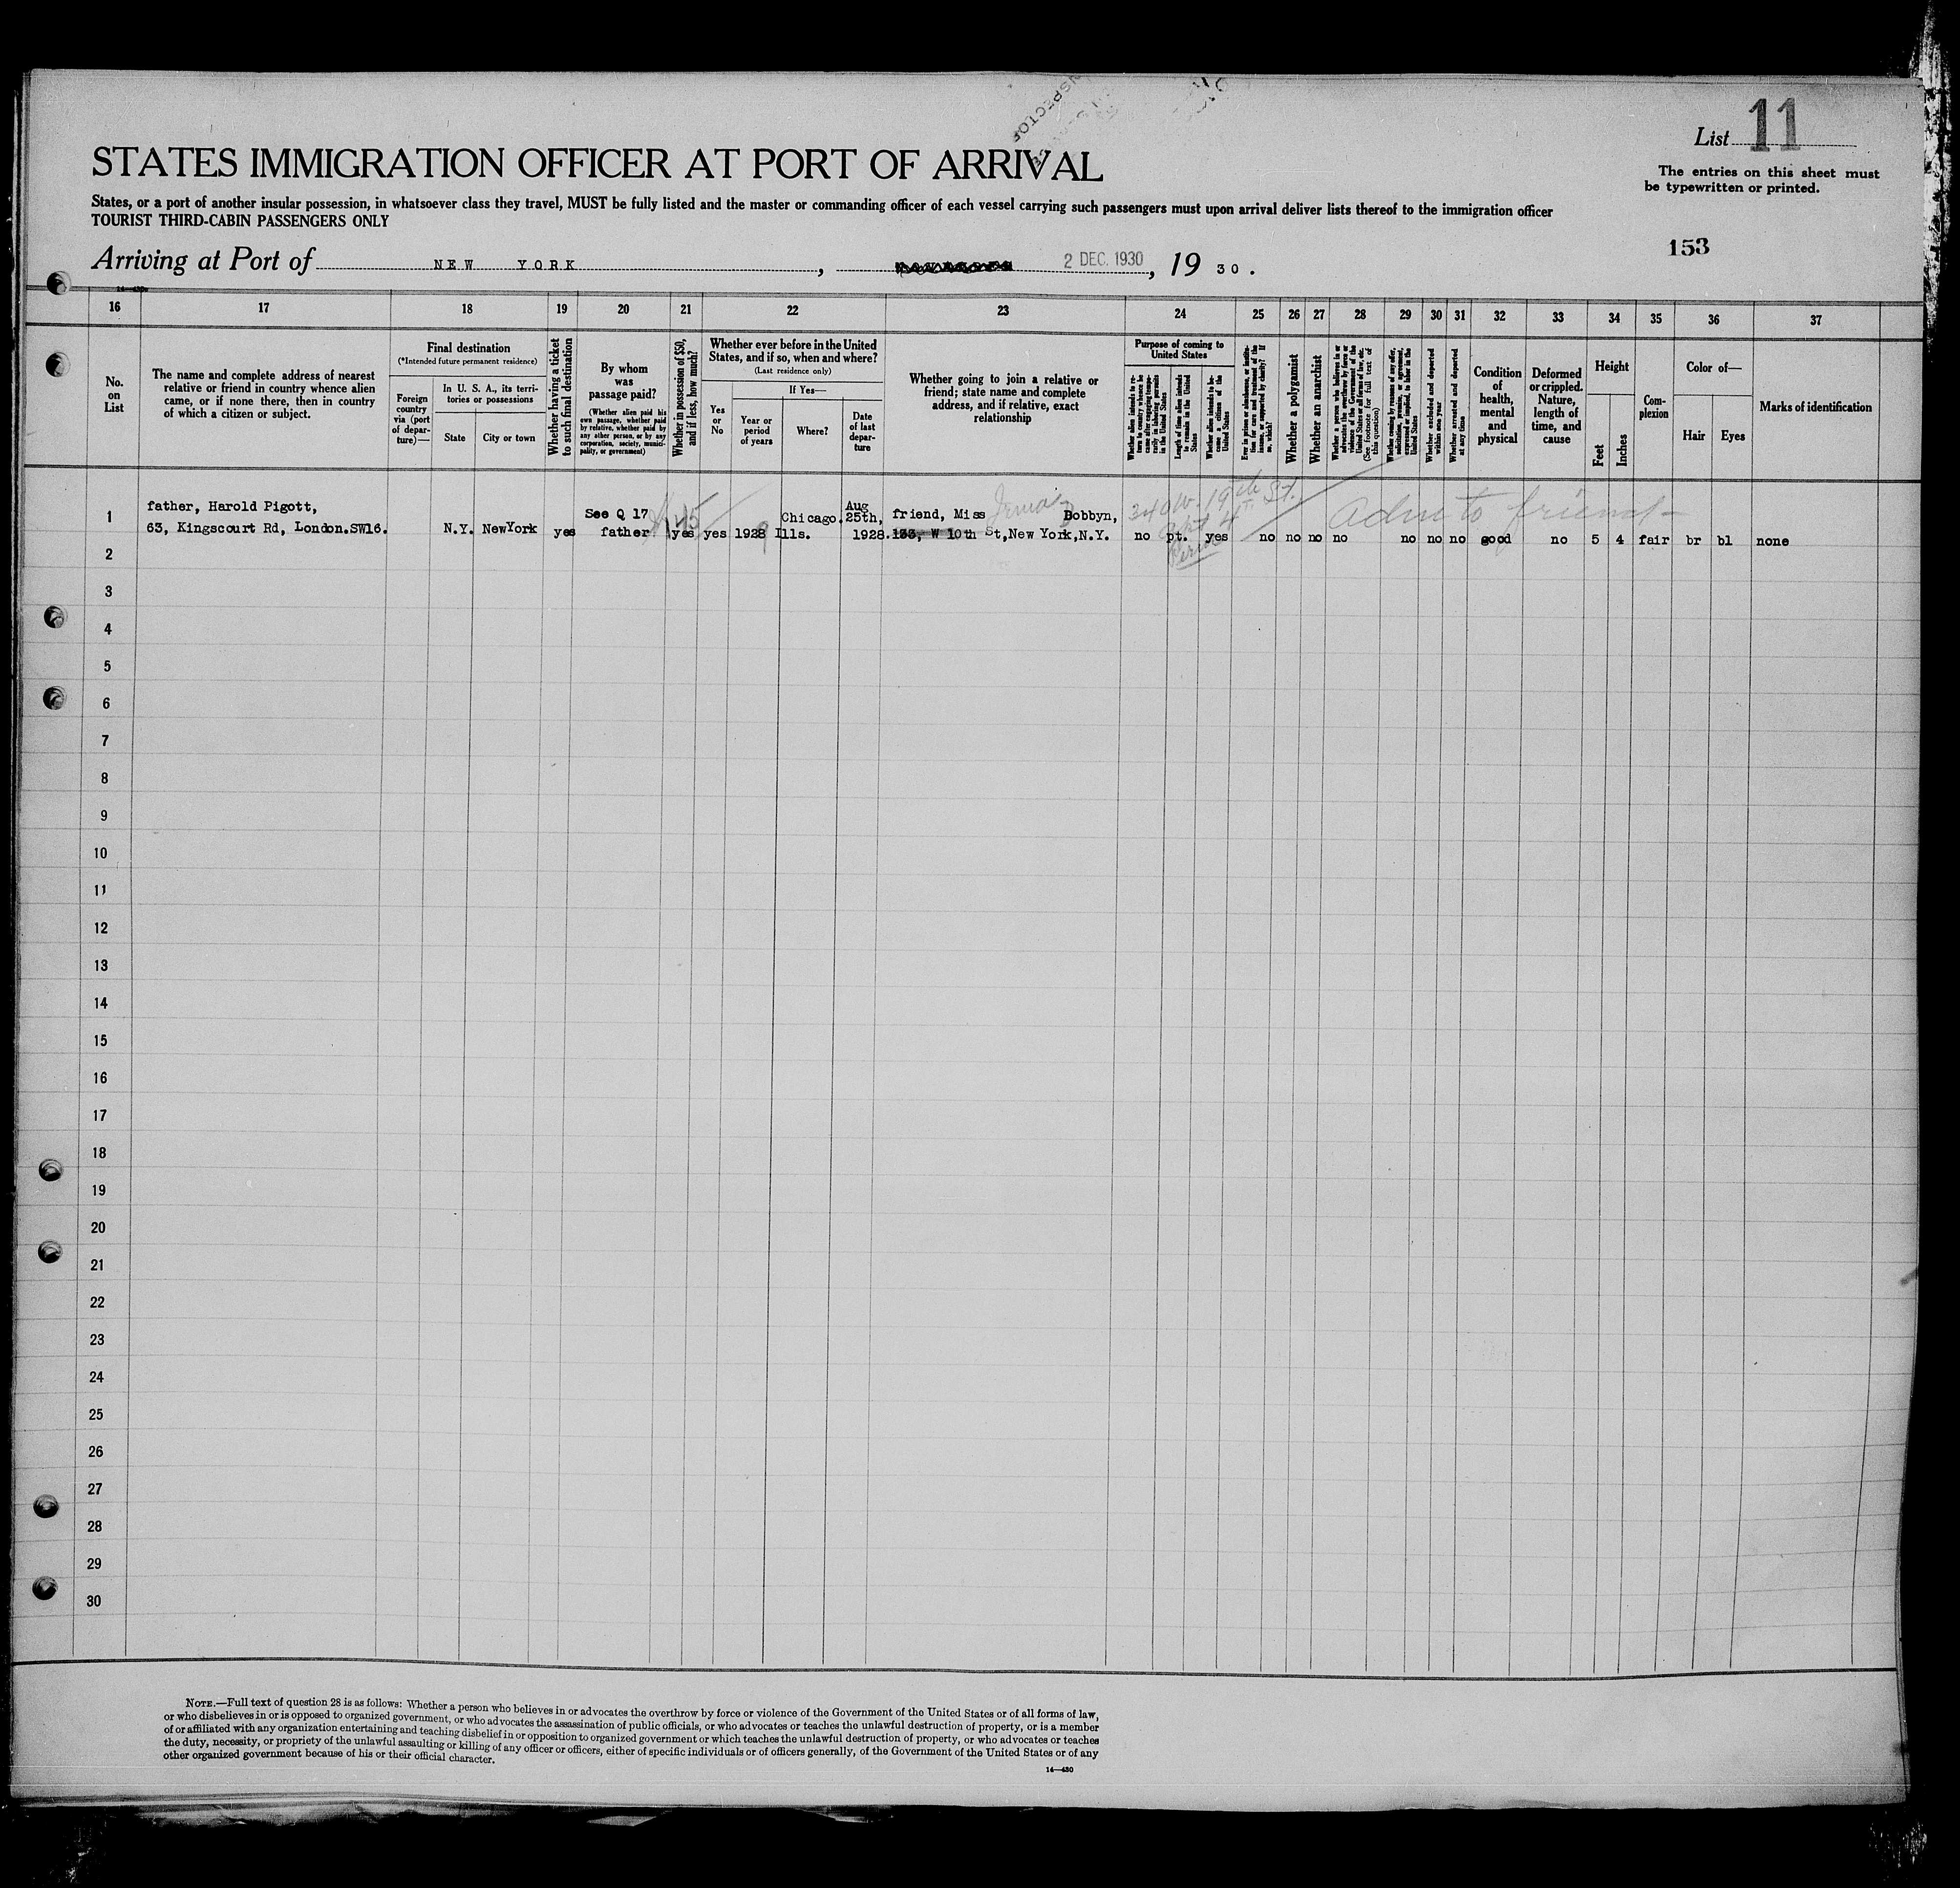 List 11
STATES IMMIGRATION OFFICER AT PORT OF ARRIVAL
The entries on this sheet must
be typewritten or printed.
States, or a port of another insular possession, in whatsoever class they travel, MUST be fully listed and the master or commanding officer of each vessel carrying such passengers must upon arrival deliver lists thereof to the immigration officer
TOURIST THIRD-CABIN PASSENGERS ONLY
153
Arriving at Port of NEW YORK, 2 DEC. 1930, 19 30.
16 17 18 19 20 21 22 23 24 25 26 27 28 29 30 31 32 33 34 35 36 37
No.
on
List
The name and complete address of nearest
relative or friend in country whence alien
came, or if none there, then in country
of which a citizen or subject.
Final destination
(*Intended future permanent residence)
Foreign
country
via (port
of depar-
ture)—
In U. S. A., its terri-
tories or possessions
State
City or town
Whether having a ticket
to such final destination
By whom
was
passage paid?
(Whether alien paid his
own passage, whether paid
by relative, whether paid by
any other person, or by any
corporation, society, munici-
pality, or government)
Whether in possession of $50,
and if less, how much?
Whether ever before in the United
States, and if so, when and where?
(Last residence only)
Yes
or
No
If Yes—
Year or
period
of years
Where?
Date
of last
depar-
ture
Whether going to join a relative or
friend; state name and complete
address, and if relative, exact
relationship
Purpose of coming to
United States
Whether alien intends to re-
turn to country whence he
came after engaging tempo-
rarily in laboring pursuits
in the United States
Length of time alien intends
to remain in the United
States
Whether alien intends to be-
come a citizen of the
United States
Ever in prison or almshouse, or institu-
tion for care and treatment of the
insane, or supported by charity? If
so, which?
Whether a polygamist
Whether an anarchist
Whether a person who believes in or
advocates the overthrow by force or
violence of the Government of the
United States or all forms of law, etc.
(See footnote for full text of
this question)
Whether coming by reason of any offer,
solicitation, promise, or agreement,
expressed or implied, to labor in the
United States
Whether excluded and deported
within one year
Whether arrested and deported
at any time
Condition
of
health,
mental
and
physical
Deformed
or crippled.
Nature,
length of
time, and
cause
Height
Feet
Inches
Com-
plexion
Color of—
Hair
Eyes
Marks of identification
1 father, Harold Pigott, See Q 17 45 Chicago. Aug 25th, friend, Miss Irma Bobbyn, 340 W. 19th St. Adm to friend
63, Kingscourt Rd, London.SW16. N.Y. NewYork yes father yes yes 1928 Ills. 1928. 133, W 10th St, New York, N.Y. no pt. yes no no no no no no no good no 5 4 fair br bl none
2
3
4
5
6
7
8
9
10
11
12
13
14
15
16
17
18
19
20
21
22
23
24
25
26
27
28
29
30
NOTE.—Full text of question 28 is as follows: Whether a person who believes in or advocates the overthrow by force or violence of the Government of the United States or of all forms of law,
or who disbelieves in or is opposed to organized government, or who advocates the assassination of public officials, or who advocates or teaches the unlawful destruction of property, or is a member
of or affiliated with any organization entertaining and teaching disbelief in or opposition to organized government or which teaches the unlawful destruction of property, or who advocates or teaches
the duty, necessity, or propriety of the unlawful assaulting or killing of any officer or officers, either of specific individuals or of officers generally, of the Government of the United States or of any
other organized government because of his or their official character.
14—430